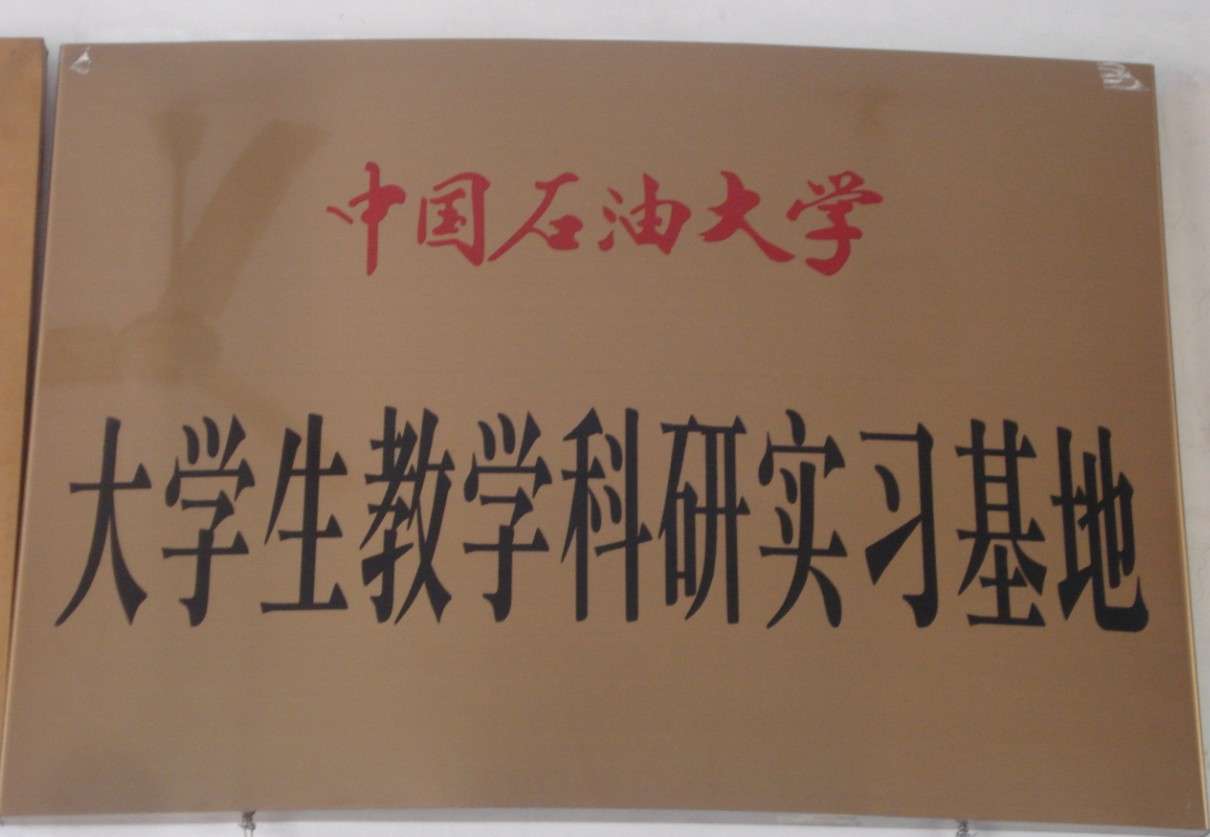 中国石油大学
大学生教学科研实习基地